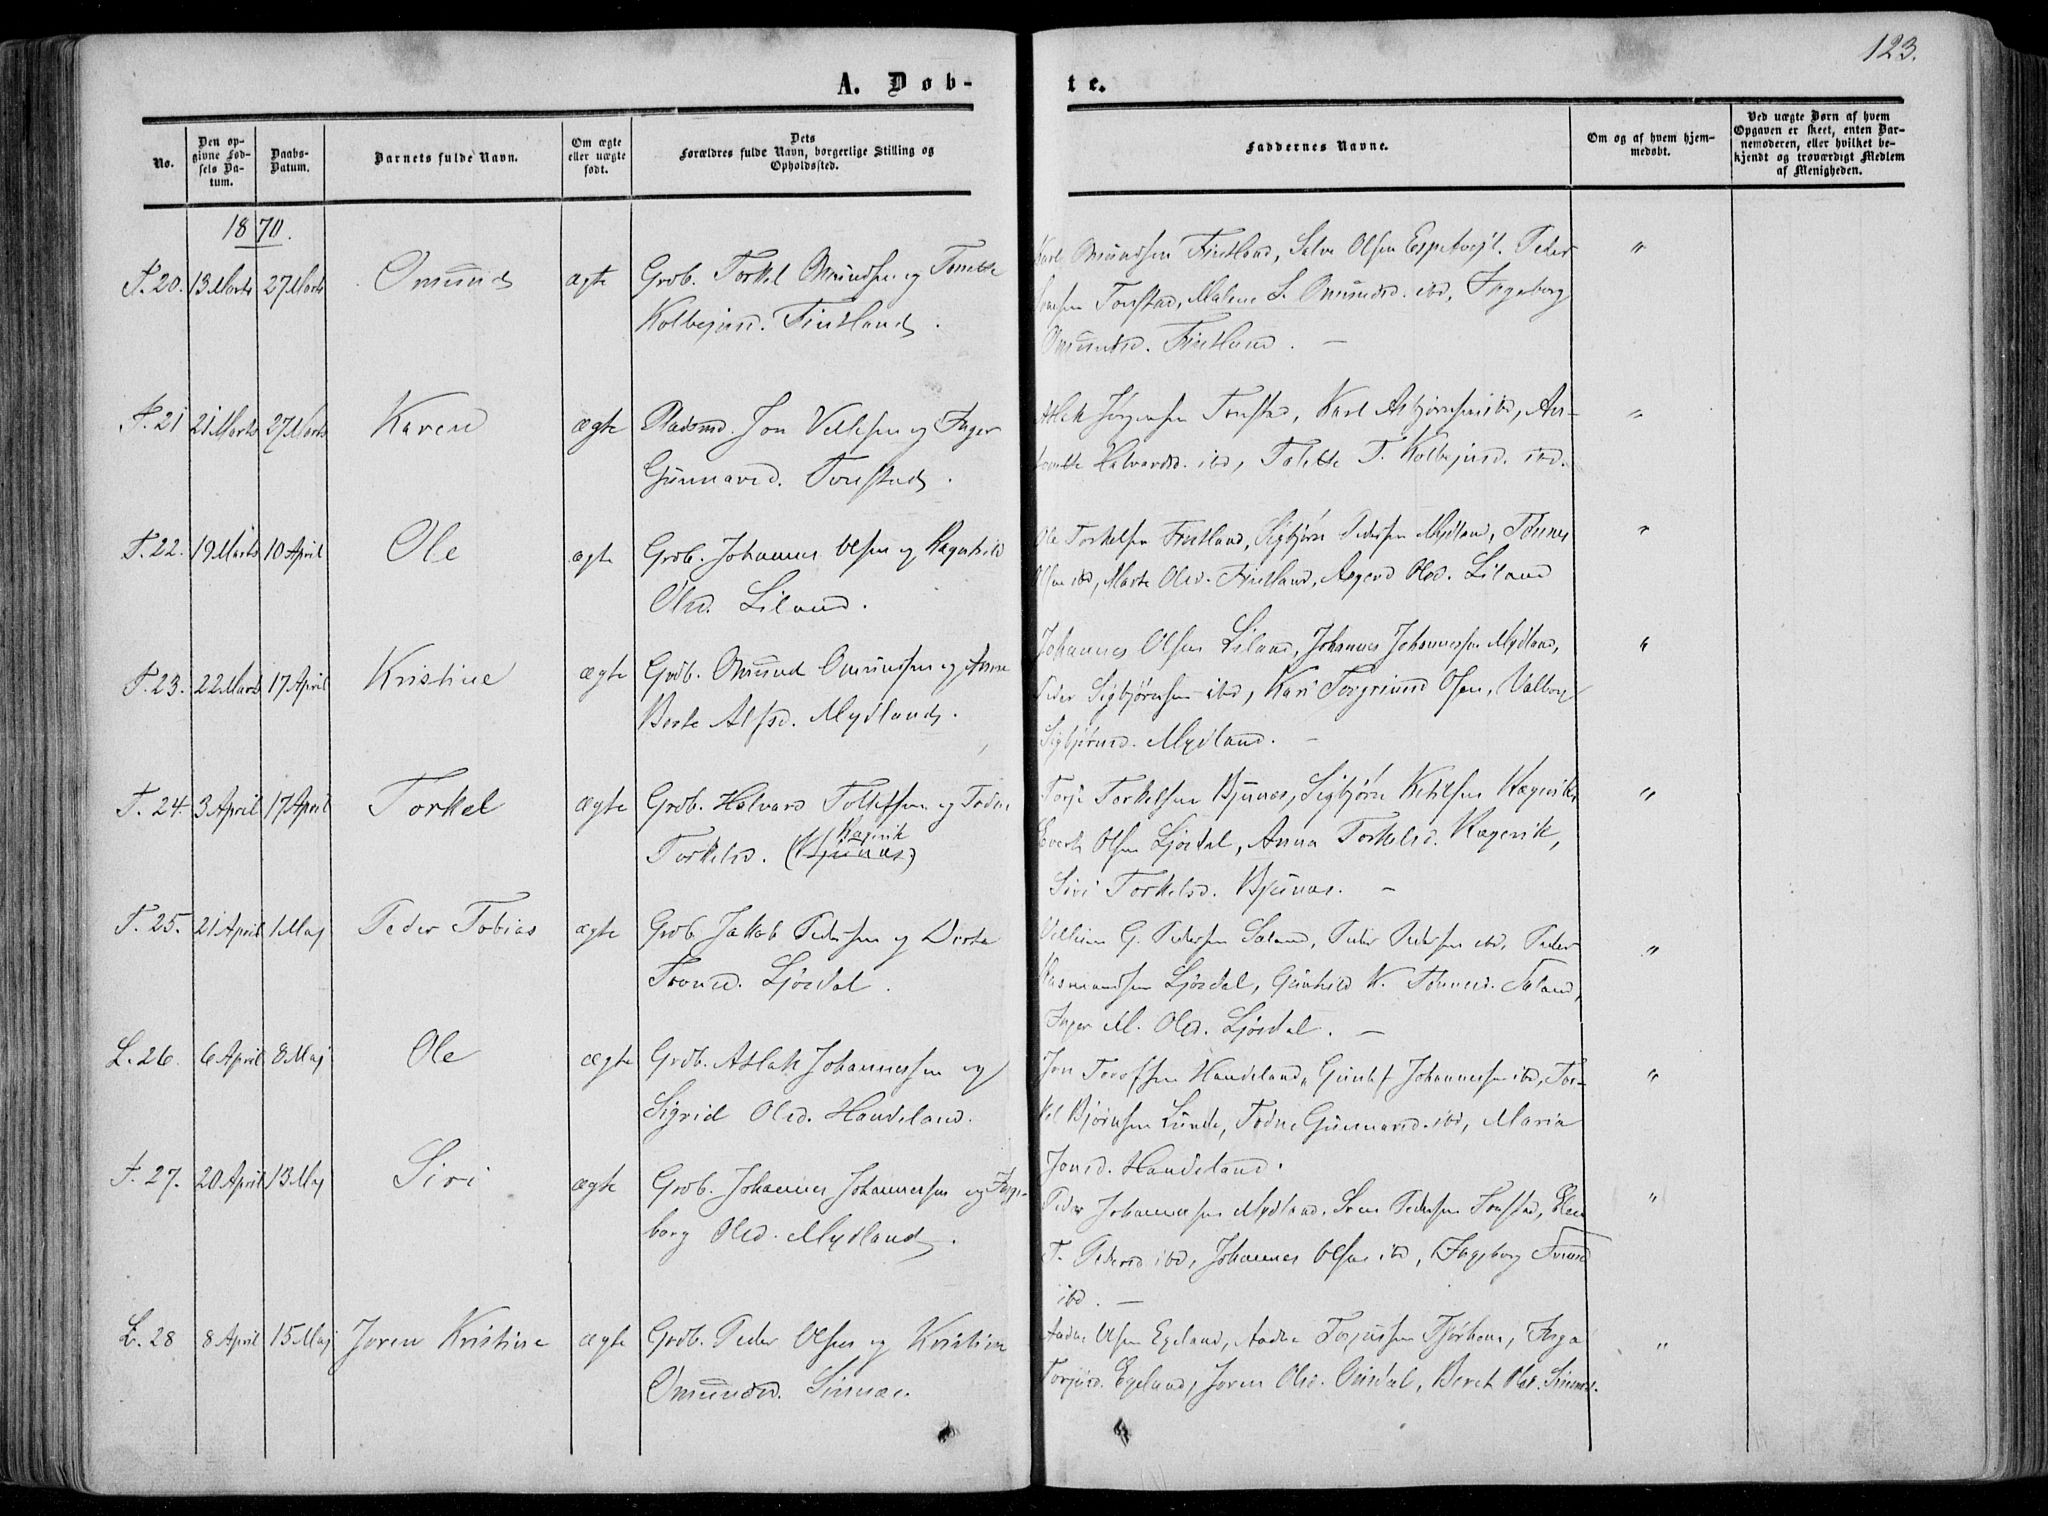 123.
A. Døb-
te.
No.
Den op-
givne Fød-
sels Da-
tum.
Daabs-
Datum.
Barnets fulde Navn.
Om ægte
eller uægte
født.
Dets
Forældres fulde Navn, borgerlige Stilling og
Opholdssted.
Faddernes Navne.
Om og af hvem hjem-
medøbt.
Ved uægte Børn af hvem
Opgaven er skeet, enten Bar-
nemoderen, eller hvilket be-
kjendt og troværdigt Medlem
af Menigheden.
1870.
T. 20. 13 Marts 27 Marts Omund ægte Grdb. Torkel Omundsen og Tonette
Kolbejnsd. Fintland.
Karl Omundsen Fintland, Salve Olsen Espetvejt. Peder
Tonstad, Malene S. Omundsd. ibd, Ingeborg
Omundsd. Fintland. —
"
T. 21 21 Marts 27 Marts Karen ægte Pladsmd. Jon Vellesen og Inger
Gunnarsd. Tonstad.
Atlak Jørgensen Tonstad, Karl Asbjørnsen ibd, An-
tonette Halvardsd. ibd, Tolette T. Kolbejnsd. ibd.
"
T. 22. 19 Marts 10 April Ole ægte Grdb. Johannes Olsen og Ragnhild
Olsd. Liland.
Ole Torkelsen Fintland, Sigbjørn Pedersen Mydland, Tønnes
Olsen ibd, Marte Olsd. Fintland, Asgerd Olsd. Liland
"
T. 23. 22 Marts 17 April Kristine ægte Grdb. Omund Omundsen og Anne
Berte Alfsd. Mydland.
Johannes Olsen Liland, Johannes Johannessen Mydland,
Peder Sigbjørnsen ibd, Kari Torgrimsd Osen, Valborg
Sigbjørnsd. Mydland. —
"
T. 24. 3 April 17 April Torkel ægte Grdb. Halvard Tollefsen og Todne
Torkelsd. (Bjunes) Kagevik
Torje Torkelsen Bjunes, Sigbjørn Ketilsen Kagevik,
Evert Olsen Ljosdal, Anna Torkelsd. Kagevik,
Siri Torkelsd. Bjunes. —
"
T. 25. 21 April 1 Maj Peder Tobias ægte Grdb. Jakob Pedersen og Dorte
Tronsd. Ljosdal.
Villum G. Pedersen Saland, Peder Pedersen ibd, Peder
Rasmundsen Ljosdal, Gunhild K. Tønnesd. Saland,
Inger M. Olsd. Ljosdal. —
"
L. 26. 6 April 8 Maj Ole ægte Grdb. Atlak Johannessen og
Sigrid Olsd. Haudeland.
Jon Torofsen Haudeland, Gunulf Johannessen ibd, Tor-
kel Bjørnsen Lunde, Todne Gunnarsd. ibd, Maria
Jonsd. Haudeland.
"
T. 27. 20 April 13 Maj Siri ægte Grdb. Johannes Johannessen og Inge-
borg Olsd. Mydland.
Peder Johannessen Mydland, Sven Pedersen Tonstad, Elen
T. Pedersd. ibd, Johannes Olsen ibd, Ingeborg Svensd
ibd. —
"
L. 28 8 April 15 Maj Joren Kristine ægte Grdb. Peder Olsen og Kristine
Omundsd. Sinnes.
Aadne Olsen Egeland, Aadne Torjussen Tjørhom, Inga
Torjusd. Egeland, Joren Olsd. Ousdal, Beret Olsd. Sinnes.
"